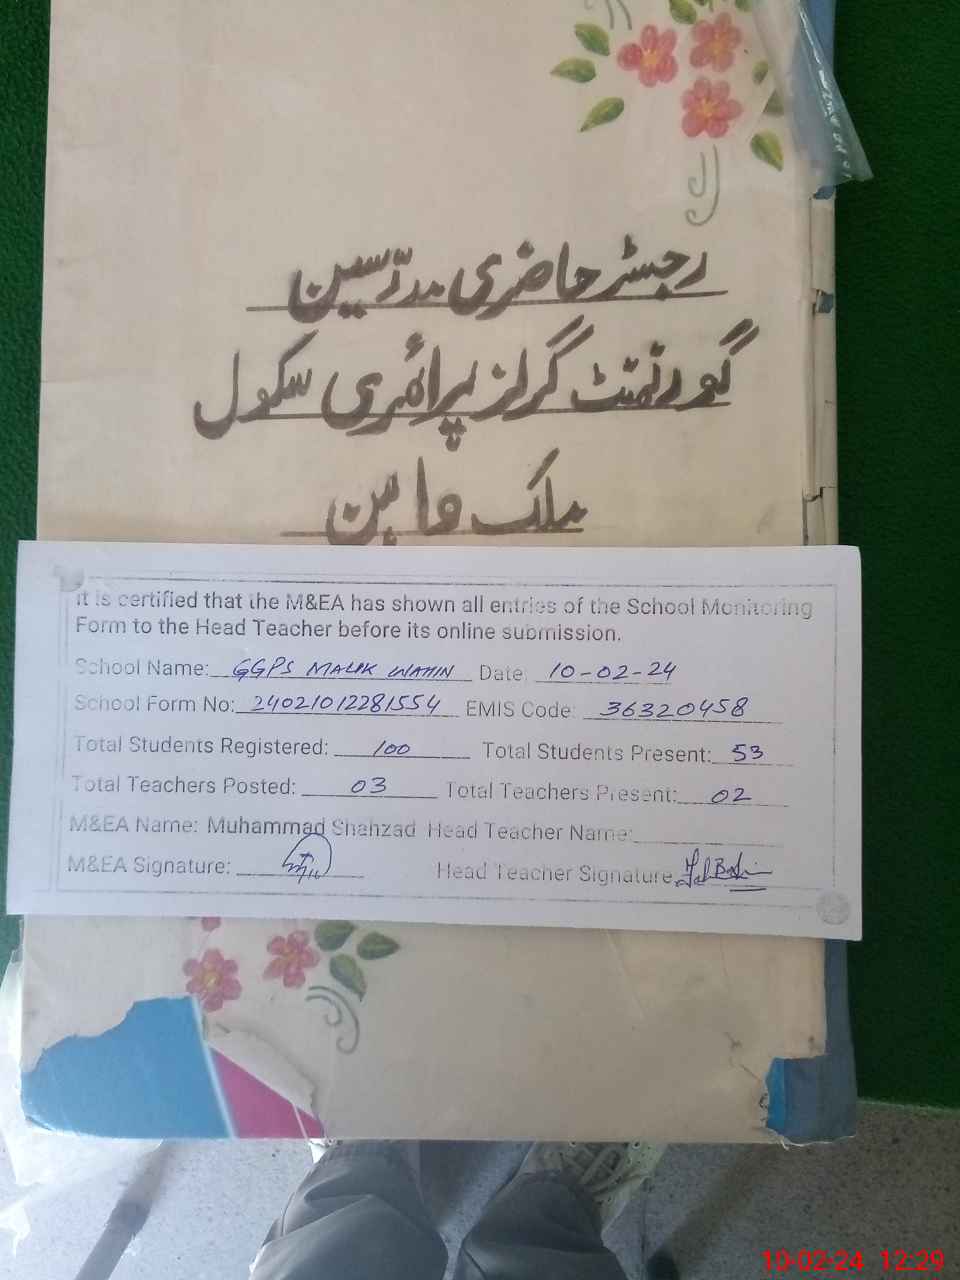 رجسٹر حاضری مدرسین
گورنمنٹ گرلز پرائمری سکول
ملک واہن
It is certified that the M&EA has shown all entries of the School Monitoring
Form to the Head Teacher before its online submission.
School Name: GGPS MALIK WAHIN Date: 10-02-24
School Form No: 24021012281554 EMIS Code: 36320458
Total Students Registered: 100 Total Students Present: 53
Total Teachers Posted: 03 Total Teachers Present: 02
M&EA Name: Muhammad Shahzad Head Teacher Name:
M&EA Signature: Head Teacher Signature
10-02-24 12:29